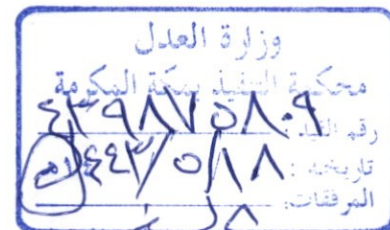 وزارة العدل
محكمة التنفيذ بمكة المكرمة
رقم القيد: ٤٣٩٨٧٥٨٠٩
تاريخه: ١٤٤٣/٥/١٨
المرفقات: